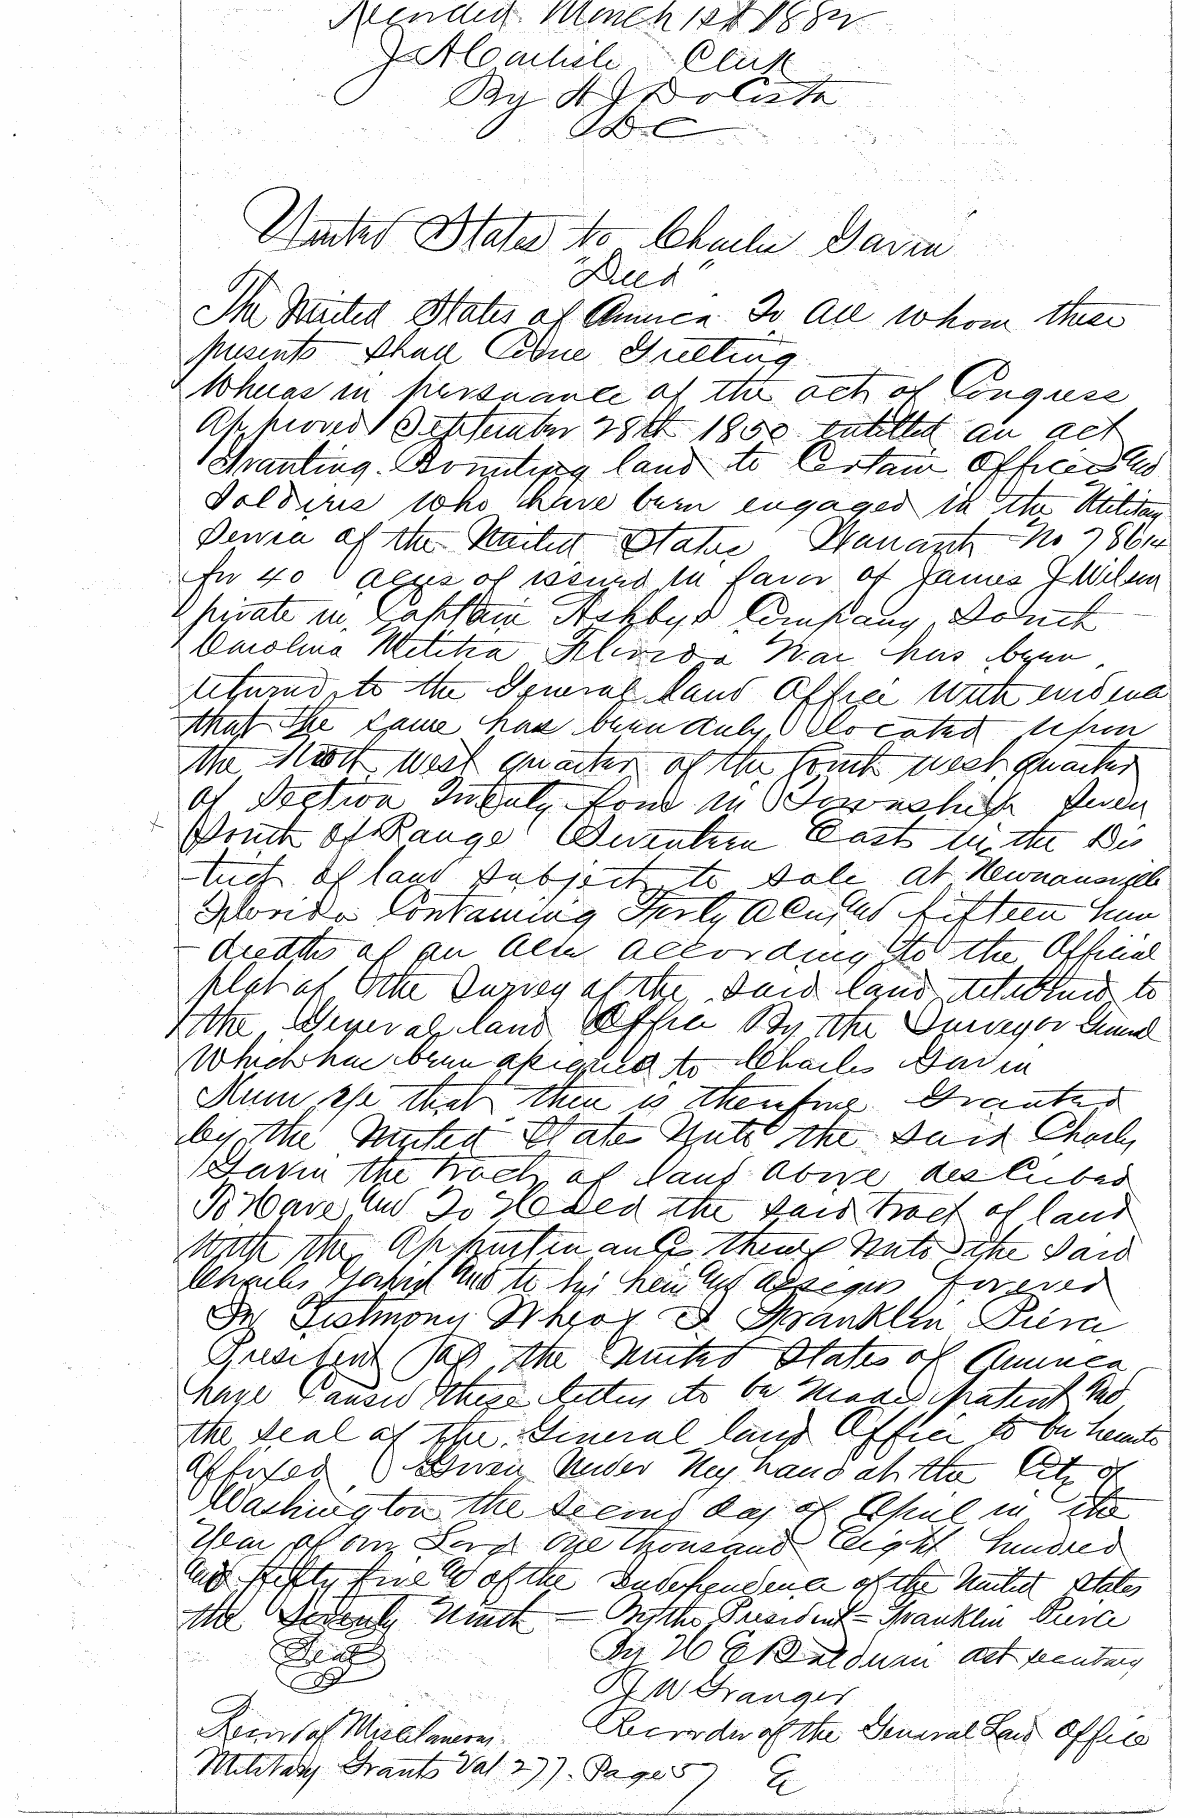 Recorded March 1st 1882
J A Carlisle Clerk
By H J DaCosta
D C
United States to Charles Gavin
"Deed"
The United States of America To all whom these
presents shall Come Greeting
Whereas in persuance of the act of Congress
Approved September 28th 1850 entitled an act
Granting Bounting land to Certain Officers and
Soldiers who have been engaged in the Military
Service of the United States Warrant No
for 40 acres of issued in favor of James J Wilson
private in Captain Ashbys Company South
Carolina Militia Florida War has been
returned to the General land Office with evidence
that the same has been duly located upon
the North west quarter of the south west quarter
of Section Twenty four in Township Seven
South of Range Seventeen East in the Dis
trict of land subject to sale at Newnansville
Florida Containing Forty acres and fifteen hun
dredths of an acre according to the Official
plat of the Survey of the said land returned to
the General land Office By the Surveyor General
Which has been assigned to Charles Gavin
Know ye that there is therefore Granted
by the United States Unto the said Charles
Gavin the tract of land above described
To Have and To Hold the said tract of land
With the Appurtenances thereof Unto the said
Charles Gavin and to his heirs and assigns forever
In Testimony Whereof I Franklin Pierce
President of the United States of America
have Caused these letters to be Made patent and
the seal of the General land Office to be hereunto
affixed Given Under My hand at the City of
Washington the second day of April in the
Year of our Lord One thousand Eight hundred
and fifty five and of the Independence of the United States
the Seventy Ninth — By the President = Franklin Pierce
Seal By H E Baldwin ast secretary
J W Granger
Record of Miscelaneous Recorder of the General Land Office
Military Grants Vol 277. Page 57